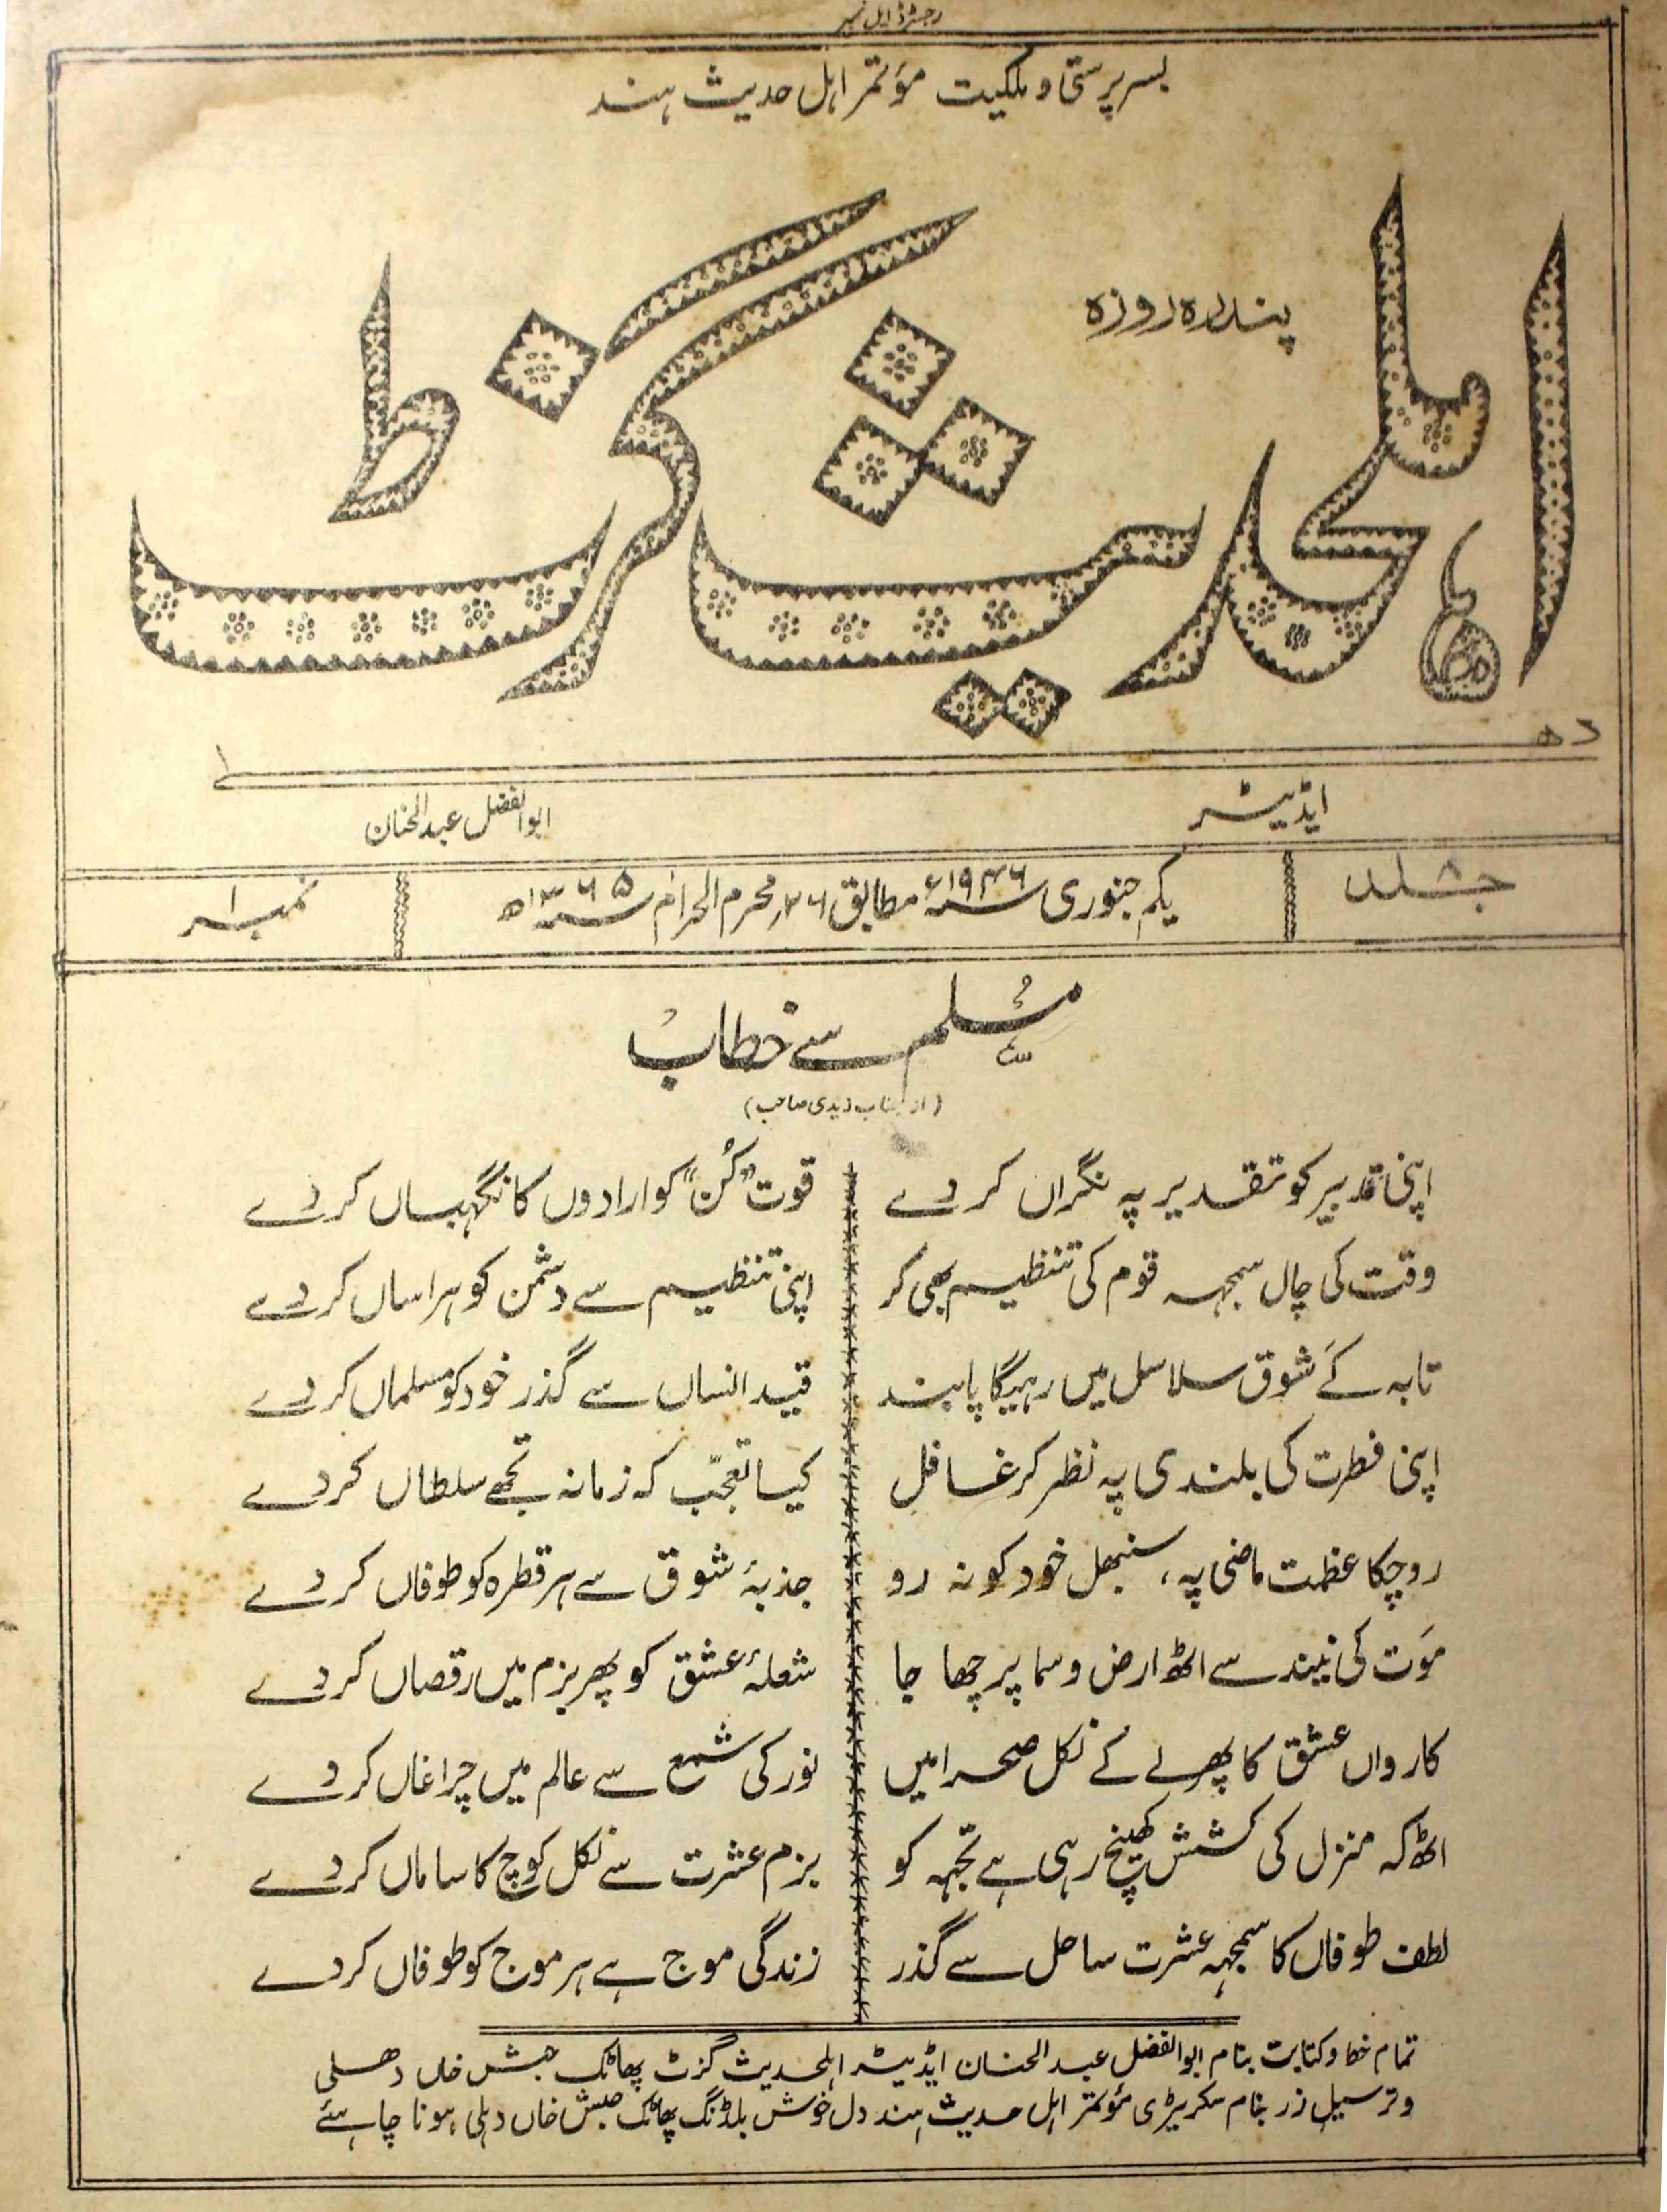 رجسٹرڈ ایل نمبر
بسرپرستی و ملکیت مؤتمر اہل حدیث ہند
پندرہ روزہ
اہلحدیث گزٹ
دہلی
ایڈیٹر
ابوالفضل عبدالحنان
جلد ۸
یکم جنوری سنہ ۱۹۴۶ء مطابق ۲۶ محرم الحرام سنہ ۱۳۶۵ھ
نمبر ۱
مُسلم سے خطاب
(از جناب زیدی صاحب)
اپنی تدبیر کو تقدیر پہ نگراں کر دے
قوت "کُن" کو ارادوں کا نگہباں کر دے
وقت کی چال سمجہہ قوم کی تنظیم بھی کر
اپنی تنظیم سے دشمن کو ہراساں کر دے
تابہ کَے شوق سلاسل میں رہیگا پابند
قید انساں سے گذر خود کو مسلماں کر دے
اپنی فطرت کی بلندی پہ نظر کر غافل
کیا تعجّب کہ زمانہ تجھے سلطاں کر دے
رو چکا عظمت ماضی پہ، سنبھل خود کو نہ رو
جذبۂ شوق سے ہر قطرہ کو طوفاں کر دے
مَوت کی نیند سے اٹھ ارض و سما پر چھا جا
شعلۂ عشق کو پھر بزم میں رقصاں کر دے
کارواں عشق کا پھر لے کے نکل صحرا میں
نور کی شمع سے عالم میں چراغاں کر دے
اٹھ کہ منزل کی کشش کھینچ رہی ہے تجہہ کو
بزم عشرت سے نکل کوچ کا ساماں کر دے
لطف طوفاں کا سمجہہ عشرت ساحل سے گذر
زندگی موج ہے ہر موج کو طوفاں کر دے
تمام خط و کتابت بنام ابوالفضل عبدالحنان ایڈیٹر اہلحدیث گزٹ پھاٹک حبش خاں دہلی
و ترسیل زر بنام سکریٹری مؤتمر اہل حدیث ہند دل خوش بلڈنگ پھاٹک حبش خاں دہلی ہونا چاہئے